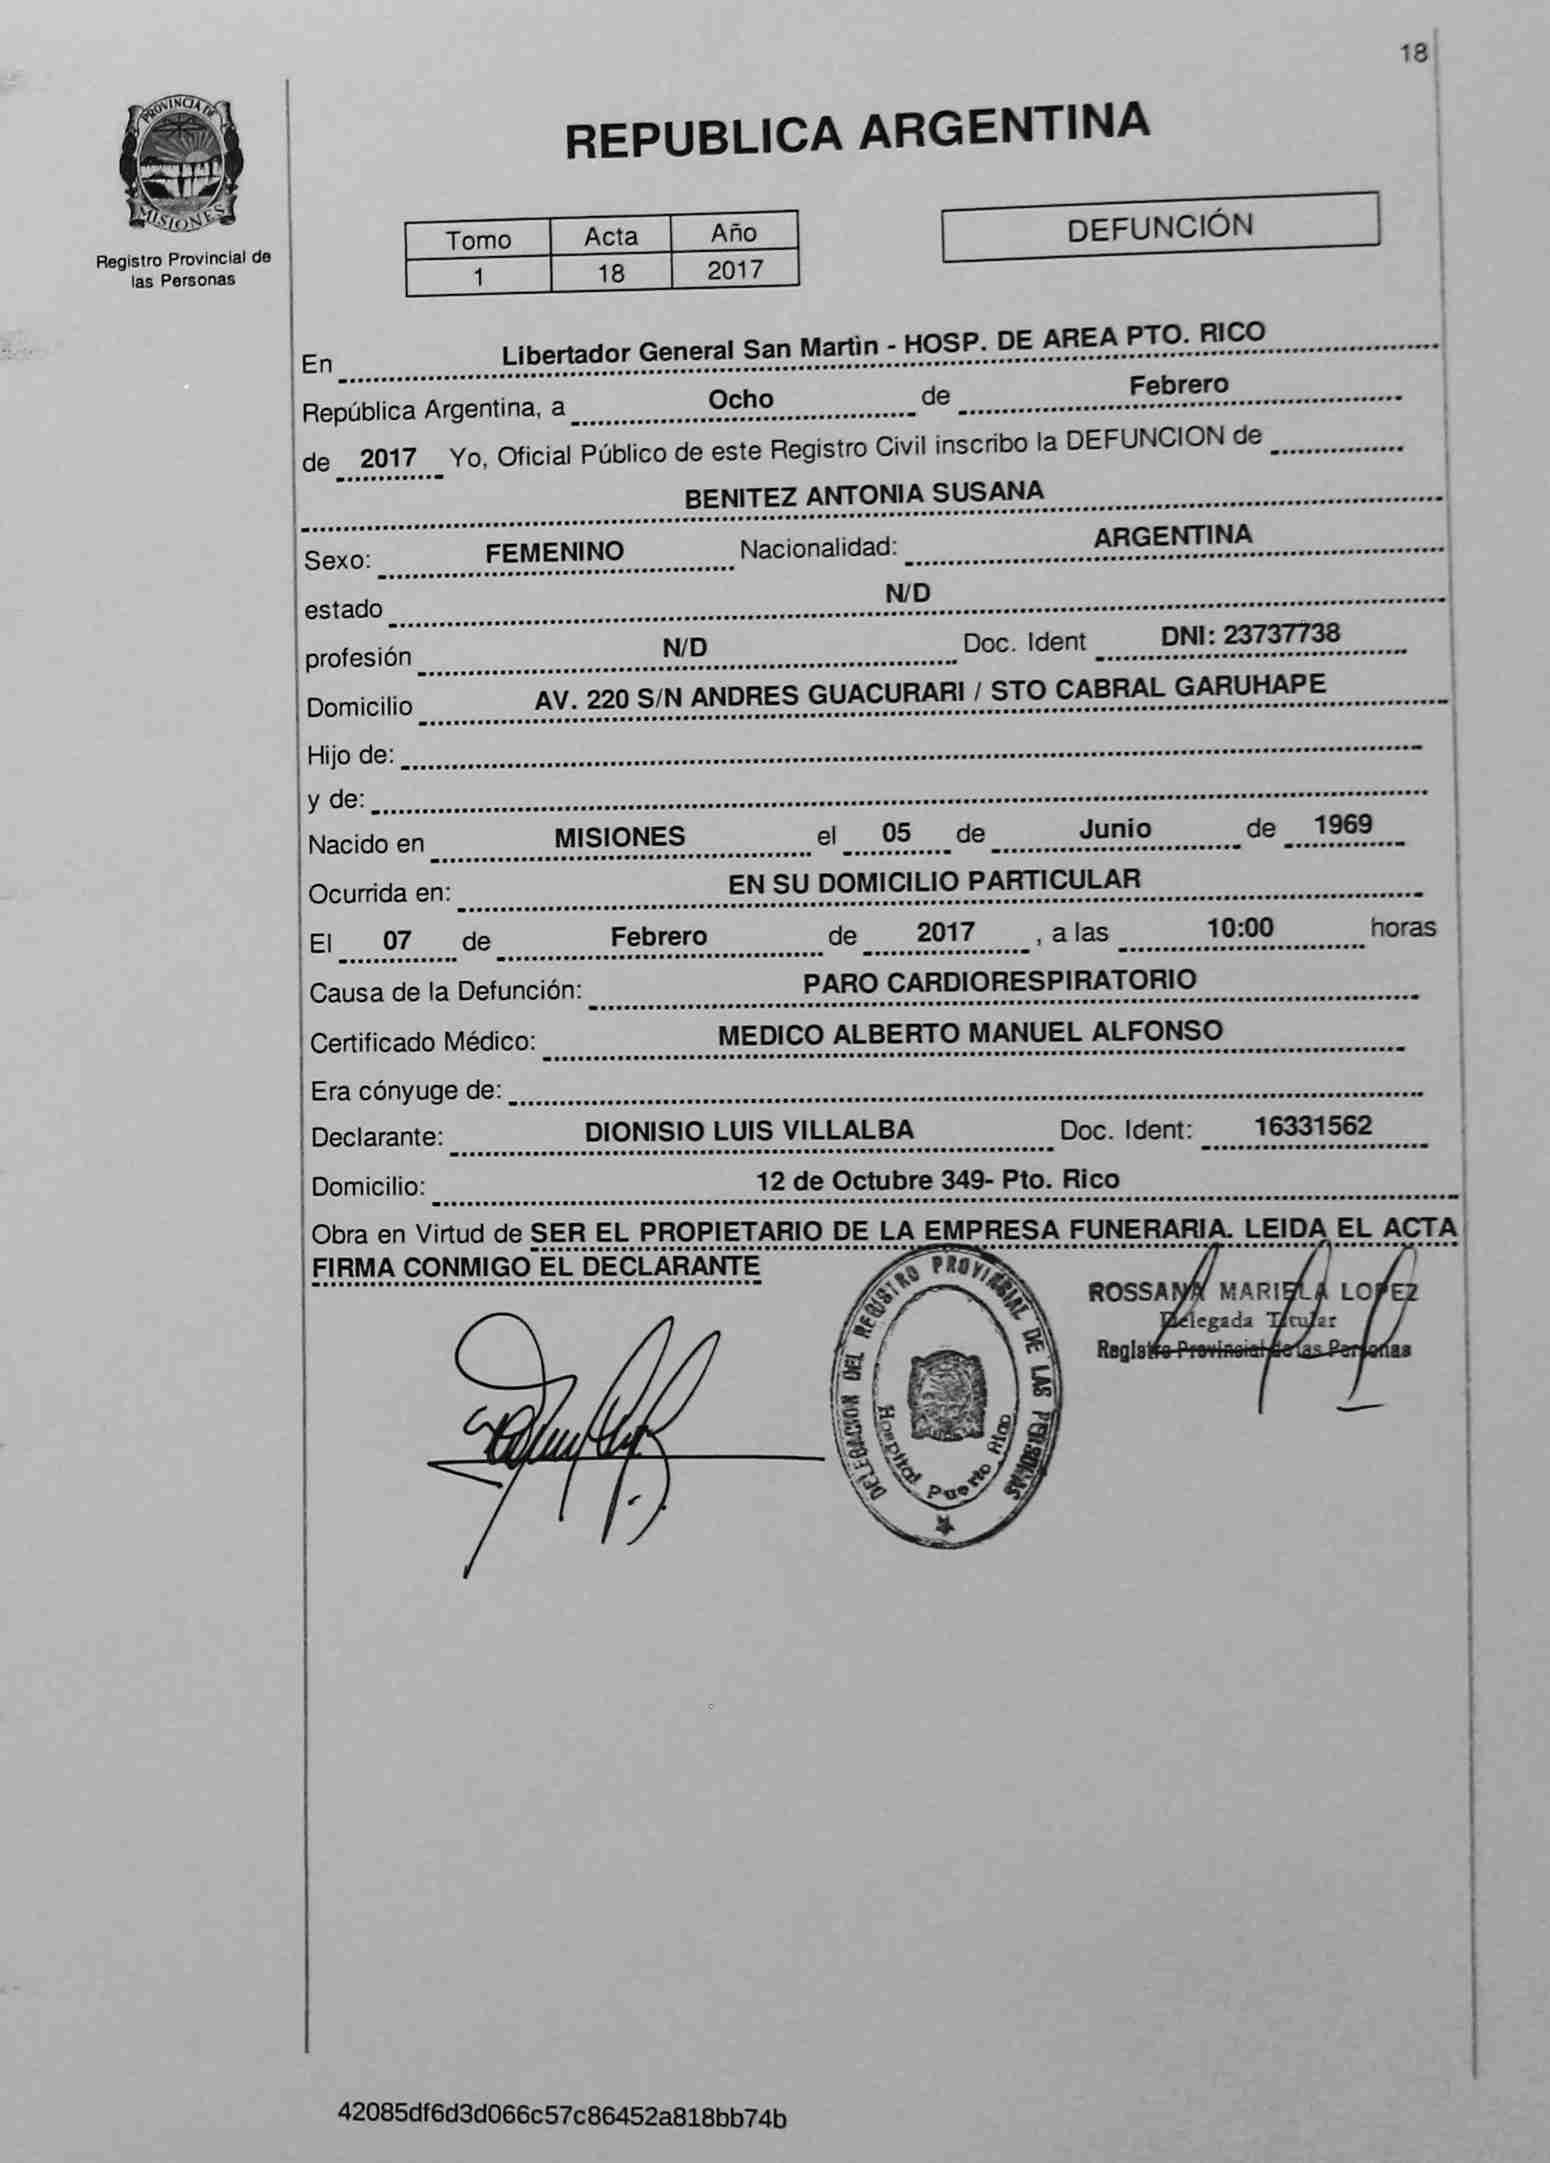 18
PROVINCIA DE
MISIONES
Registro Provincial de
las Personas
REPUBLICA ARGENTINA
Tomo Acta Año
1 18 2017
DEFUNCIÓN
En Libertador General San Martìn - HOSP. DE AREA PTO. RICO
República Argentina, a Ocho de Febrero
de 2017 Yo, Oficial Público de este Registro Civil inscribo la DEFUNCION de
BENITEZ ANTONIA SUSANA
Sexo: FEMENINO Nacionalidad: ARGENTINA
estado N/D
profesión N/D Doc. Ident DNI: 23737738
Domicilio AV. 220 S/N ANDRES GUACURARI / STO CABRAL GARUHAPE
Hijo de:
y de:
Nacido en MISIONES el 05 de Junio de 1969
Ocurrida en: EN SU DOMICILIO PARTICULAR
El 07 de Febrero de 2017 , a las 10:00 horas
Causa de la Defunción: PARO CARDIORESPIRATORIO
Certificado Médico: MEDICO ALBERTO MANUEL ALFONSO
Era cónyuge de:
Declarante: DIONISIO LUIS VILLALBA Doc. Ident: 16331562
Domicilio: 12 de Octubre 349- Pto. Rico
Obra en Virtud de SER EL PROPIETARIO DE LA EMPRESA FUNERARIA. LEIDA EL ACTA
FIRMA CONMIGO EL DECLARANTE
DELEGACION DEL REGISTRO PROVINCIAL DE LAS PERSONAS
Hospital Puerto Rico
ROSSANA MARIELA LOPEZ
Delegada Titular
Registro Provincial de las Personas
42085df6d3d066c57c86452a818bb74b